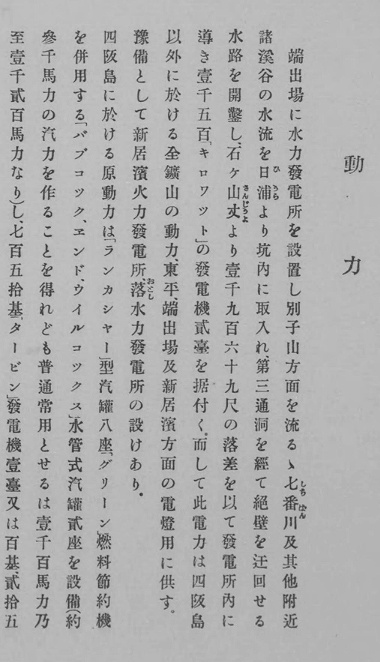 動力
端出場に水力發電所を設置し別子山方面を流るゝ七番川及其他附近
諸溪谷の水流を日浦より坑内に取入れ、第三通洞を經て絕壁を迂回せる
水路を開鑿し、石ヶ山丈より壹千九百六十九尺の落差を以て發電所内に
導き壹千五百「キロワット」の發電機貳臺を据付く、而して此電力は四阪島
以外に於ける全鑛山の動力、東平、端出場及新居濱方面の電燈用に供す。
豫備として新居濱火力發電所、落水力發電所の設けあり。
四阪島に於ける原動力は「ランカシャー」型汽罐八座、「グリーン」燃料節約機
を併用する「バブコック、エンド、ウイルコックス」水管式汽罐貳座を設備(約
參千馬力の汽力を作ることを得れども普通常用とせるは壹千百馬力乃
至壹千貳百馬力なり)し、七百五拾基、タービン」發電機壹臺又は百基貳拾五